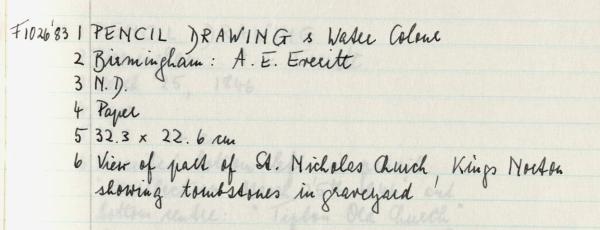 F1026'83 1 PENCIL DRAWING & Water Colour
2 Birmingham: A. E. Everitt
3 N.D.
4 Paper
5 32.3 x 22.6 cm
6 View of part of St. Nicholas Church, Kings Norton
showing tombstones in graveyard